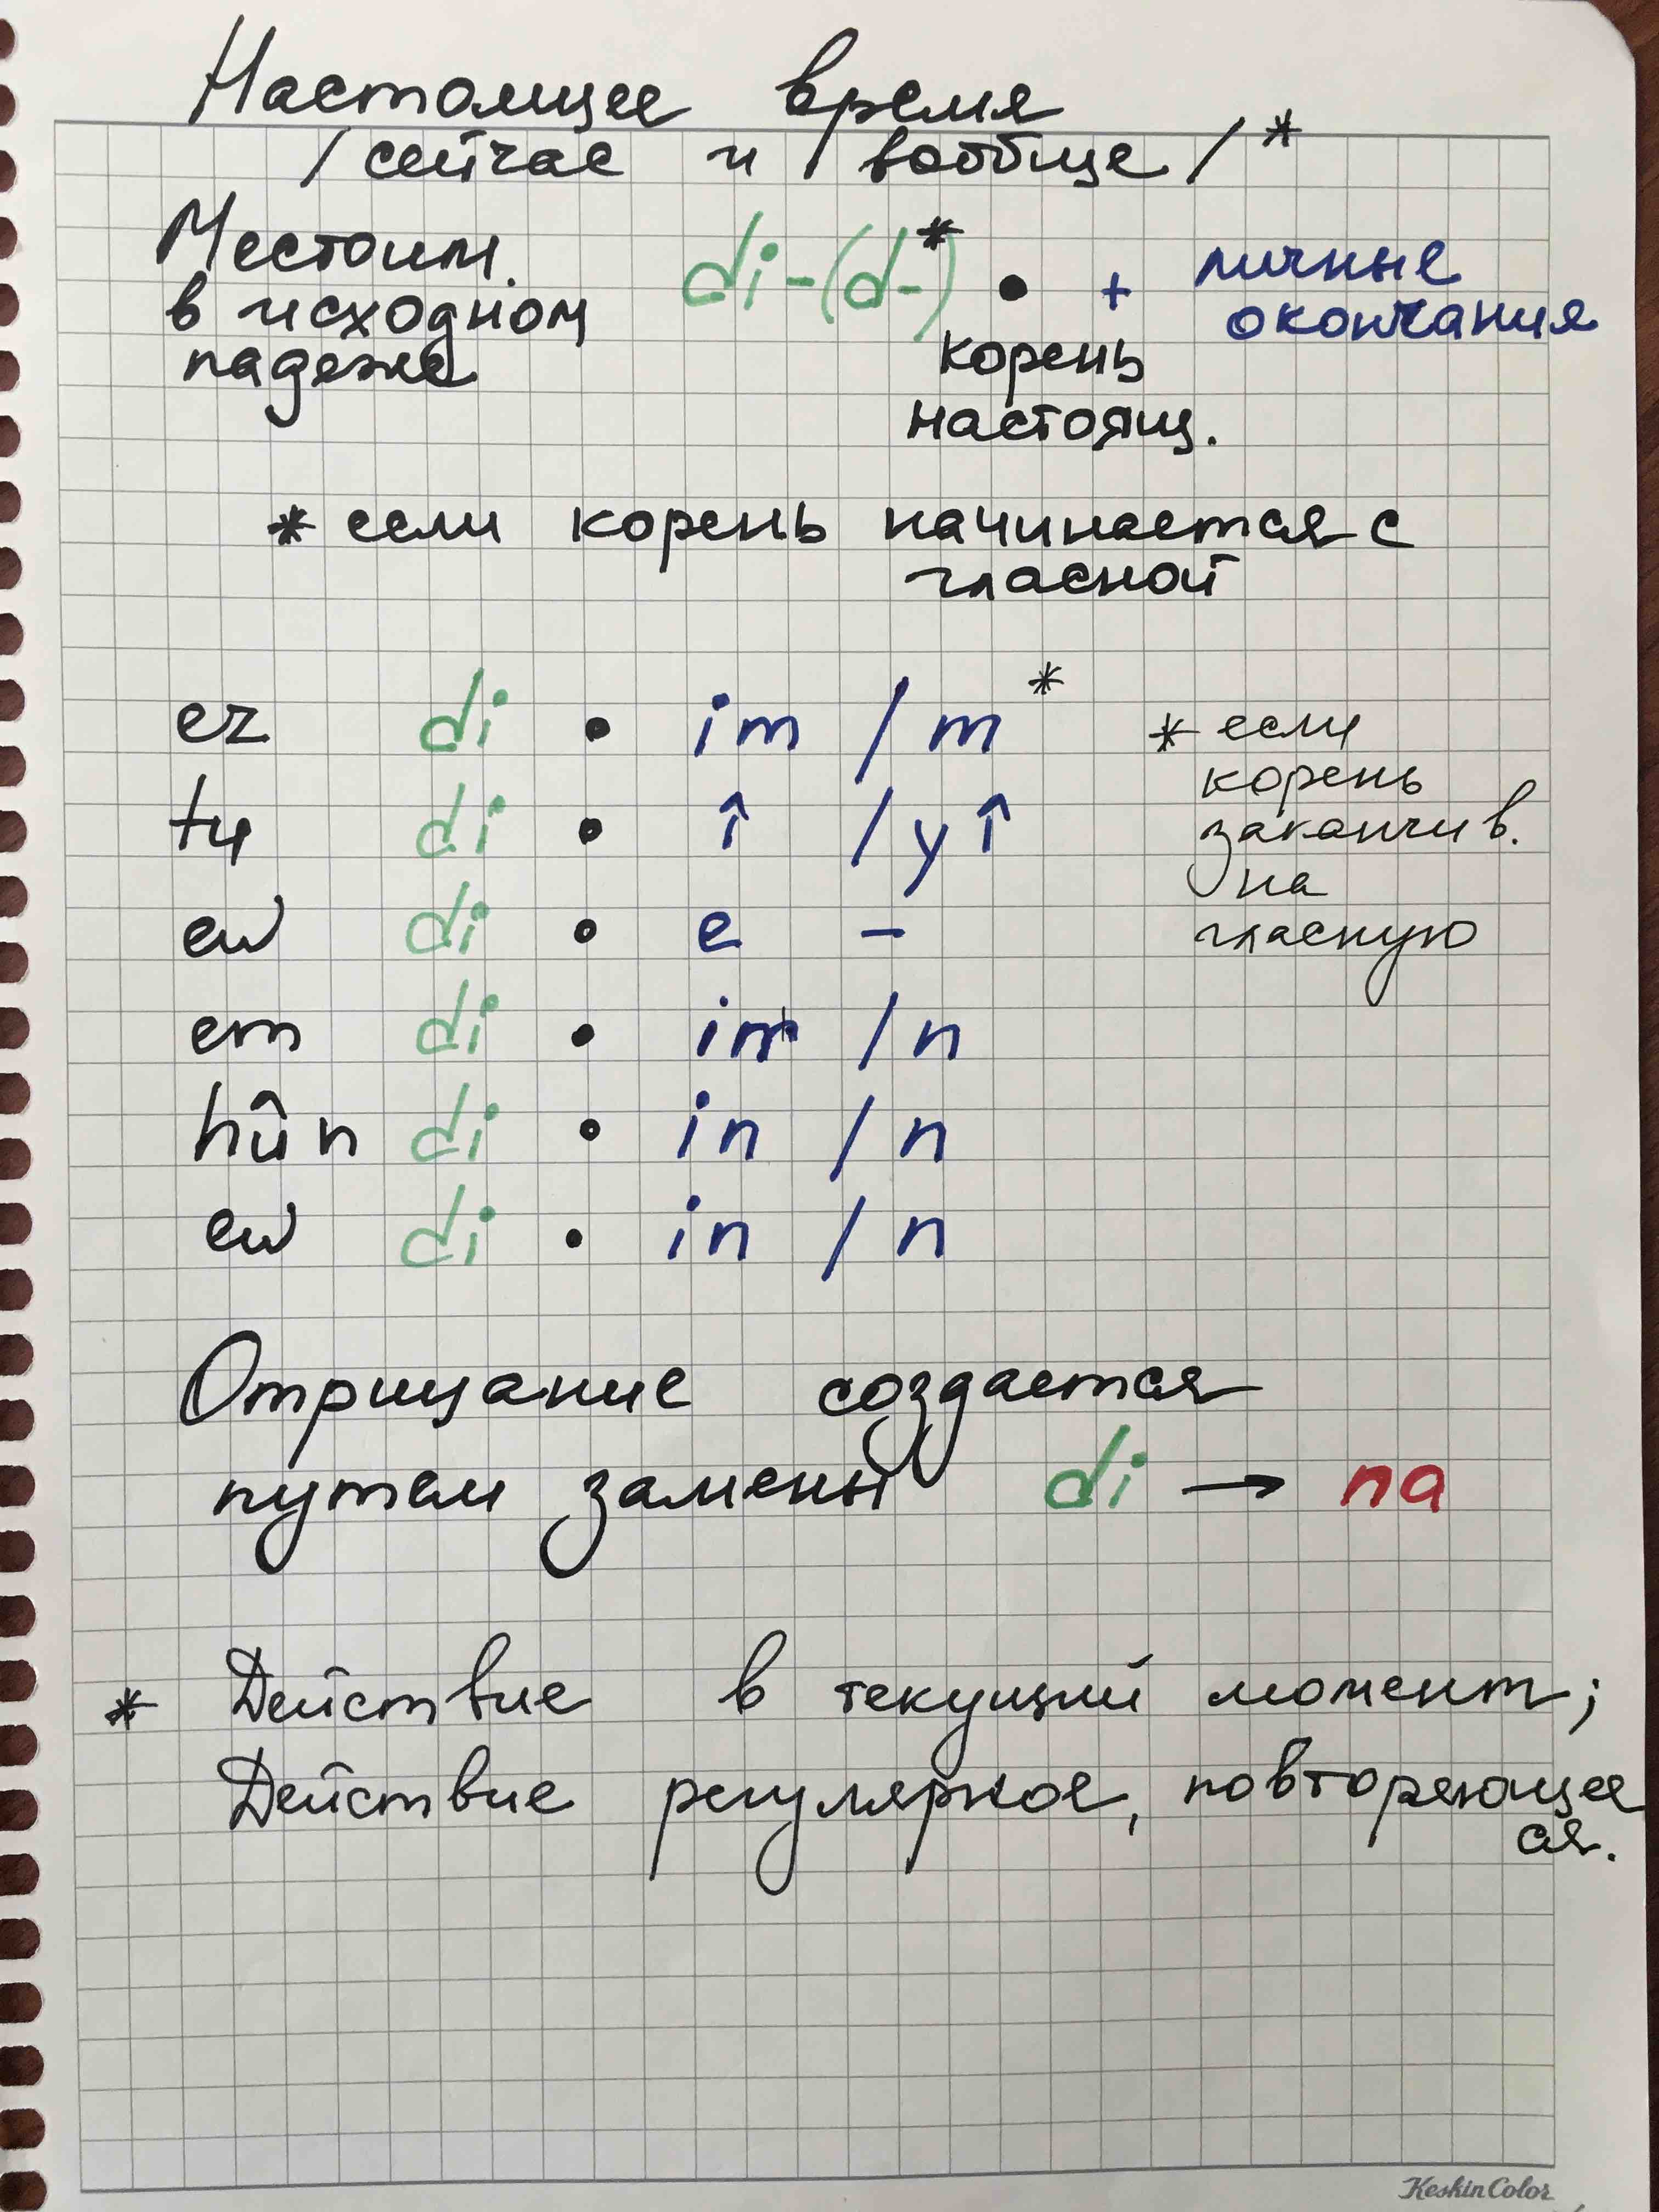 Настоящее время
/сейчас и вообще/*
Местоим. в исходном падеже di-(d-)* • + личные окончания
корень
настоящ.
* если корень начинается с
гласной
ez di • im /m*
tu di • î /yî
ew di • e -
em di • in /n
hûn di • in /n
ew di • in /n
* если
корень
заканчив.
на
гласную
Отрицание создается
путем замены di → na
* Действие в текущий момент;
Действие регулярное, повторяющее
ся.
KeskinColor